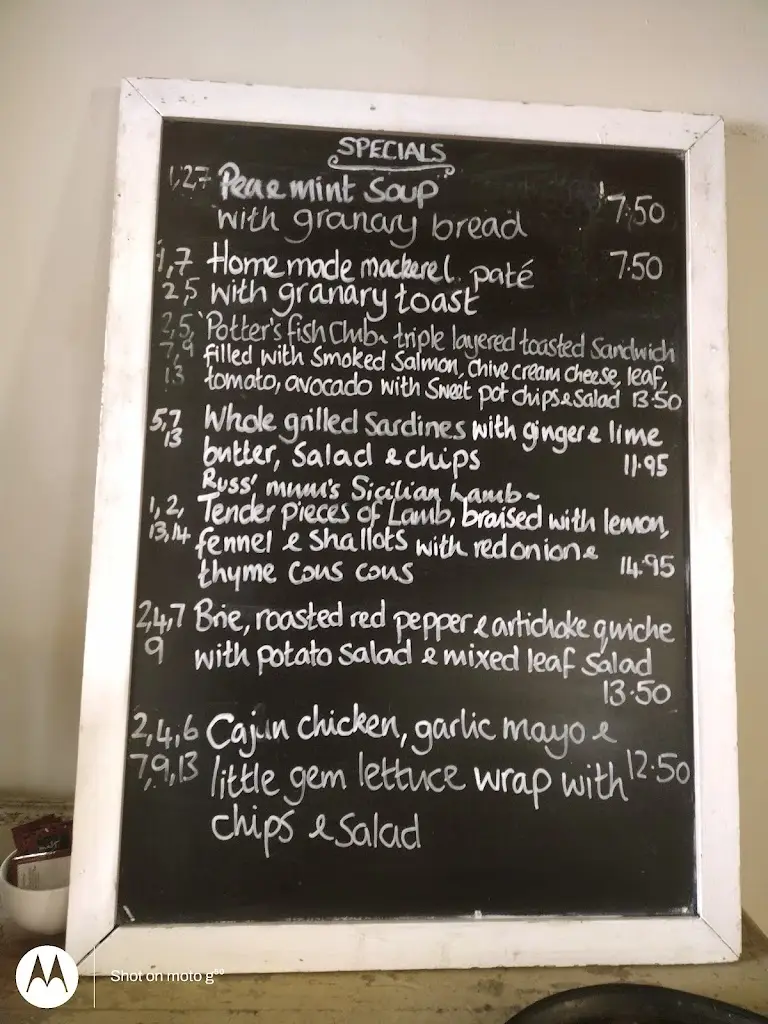 SPECIALS
1,2 7 Pea & mint Soup 7.50
with granary bread
1,7 Homemade mackerel paté 7.50
2,5 with granary toast
2,5, 'Potter's fish Club~ triple layered toasted Sandwich
7,9 filled with Smoked Salmon, Chive cream cheese, leaf,
13 tomato, avocado with Sweet pot chips & Salad 13.50
5,7 Whole grilled Sardines with ginger & lime
13 butter, Salad & chips 11.95
Russ' mum's Sicilian Lamb~
1, 2, Tender pieces of Lamb, braised with lemon,
13,14 fennel & Shallots with red onion &
thyme Cous cous 14.95
2,4,7 Brie, roasted red pepper & artichoke quiche
9 with potato salad & mixed leaf Salad
13.50
2,4,6 Cajun chicken, garlic mayo &
7,9,13 little gem lettuce wrap with 12.50
chips & Salad
Shot on moto g⁵⁰